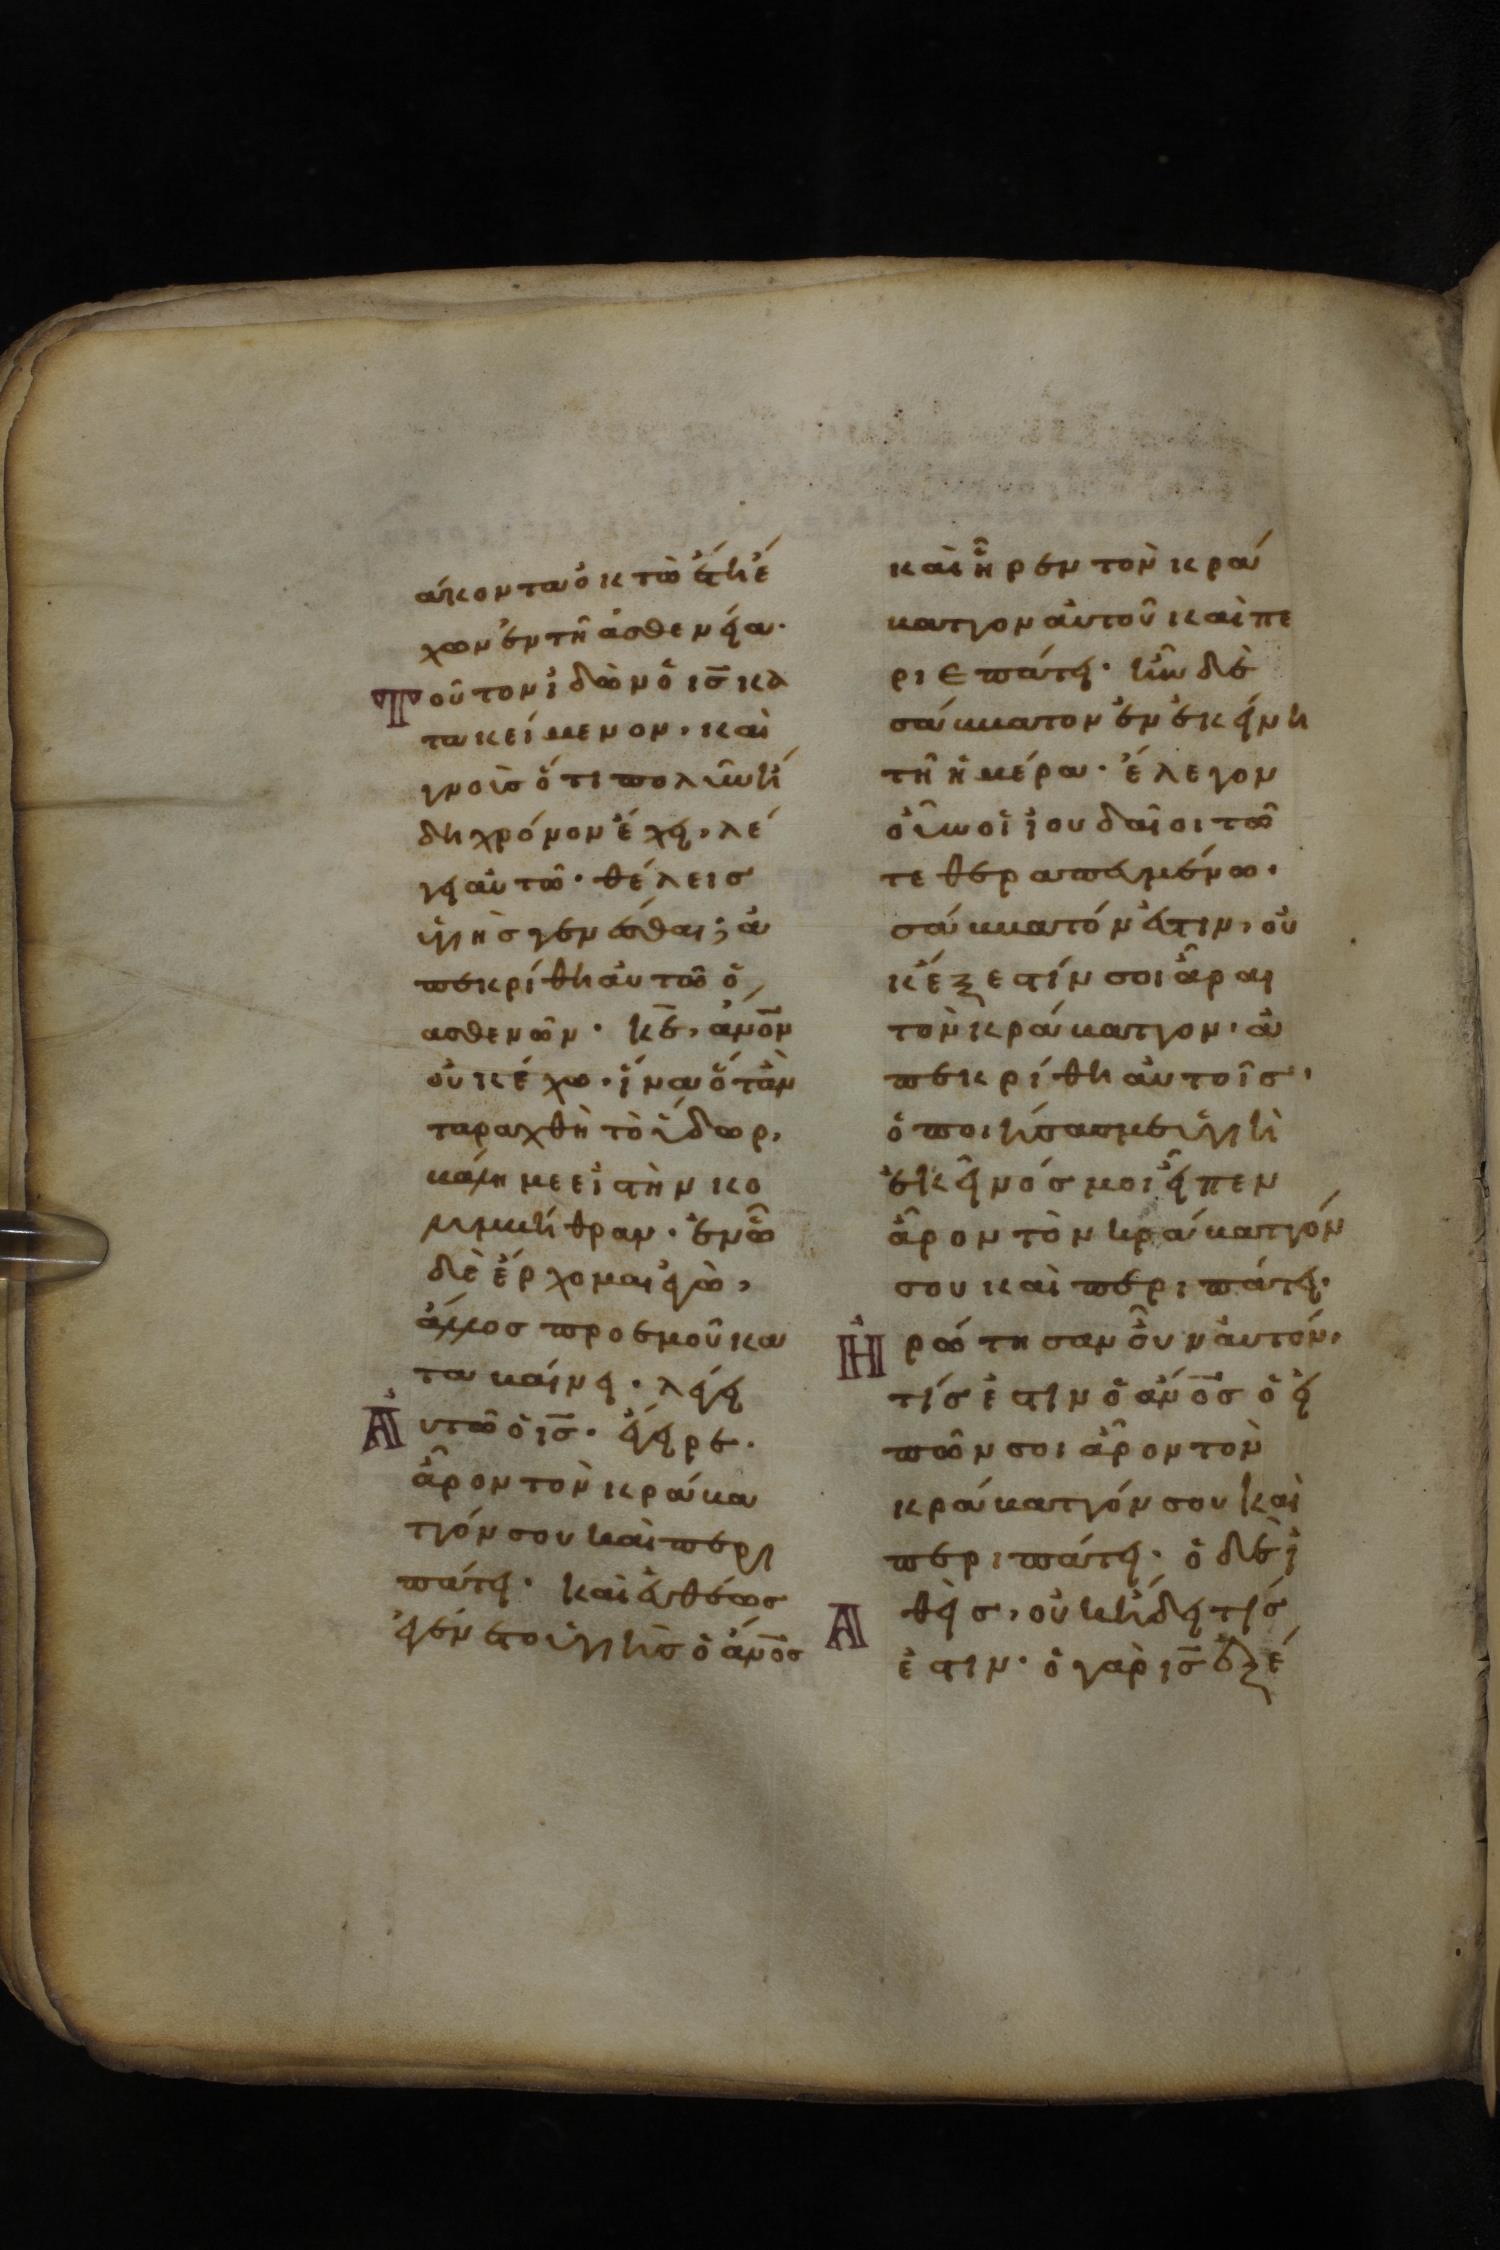 άκοντα ὀκτὼ ἔτη ἔ
χων ἐν τῆ ἀσθενεία·
Τοῦτον ἰδὼν ὁ ις̅ κα
τακείμενον, καὶ
γνοὺσ ὅτι πολὺν ἤ
δη χρόνον ἔχει, λέ
γει αὐτῶ· θέλεισ
ὑγιὴσ γενέσθαι; ἀ
πεκρίθη αὐτῶ ὁ
ασθενῶν· κε̅, ἀνο̅ν
οὐκ ἔχω. ἵνα ὅταν
ταραχθῆ τὸ ὕδωρ,
βάλη με εἰσ τὴν κο
λυμβήθραν· ἐν ὧ
δὲ ἔρχομαι ἐγὼ,
ἄλλοσ προ ἐμοῦ κα
ταβαίνει· λέγει
Αὐτῶ ὁ ις̅· ἔγειρε.
ἆρον τὸν κράβα
τόν σου καὶ περι
πάτει· καὶ εὐθέωσ
ἐγένετο ὑγιὴσ ὁ ἄνο̅σ
καὶ ἦρεν τὸν κρά
βατον αὐτοῦ καὶ πε
ριεπάτει· ἦν δὲ
σάββατον ἐν ἐκείνη
τῆ ἡμέρα· ἔλεγον
οὖν οἱ ἰουδαῖοι τῶ
τεθεραπευμένω·
σάββατόν ἐστιν, οὐ
κ ἔξεστίν σοι ἆραι
τὸν κράβατον· ἀ
πεκρίθη αὐτοῖσ,
ὁ ποιήσασ με ὑγιῆ
ἐκεῖνόσ μοι εἶπεν
ἆρον τὸν κράβατόν
σου καὶ περιπάτει·
Ἠρώτησαν οὖν αὐτόν,
τίσ ἐστιν ὁ ἄνο̅σ ὁ εἰ
πῶν σοι ἆρον τὸν
κράβατόν σου καὶ
περιπάτει· ὁ δὲ ἰ
Αθεὶσ, οὐκ ἤδει τίσ
ἐστιν· ὁ γὰρ ις̅ ἐξέ